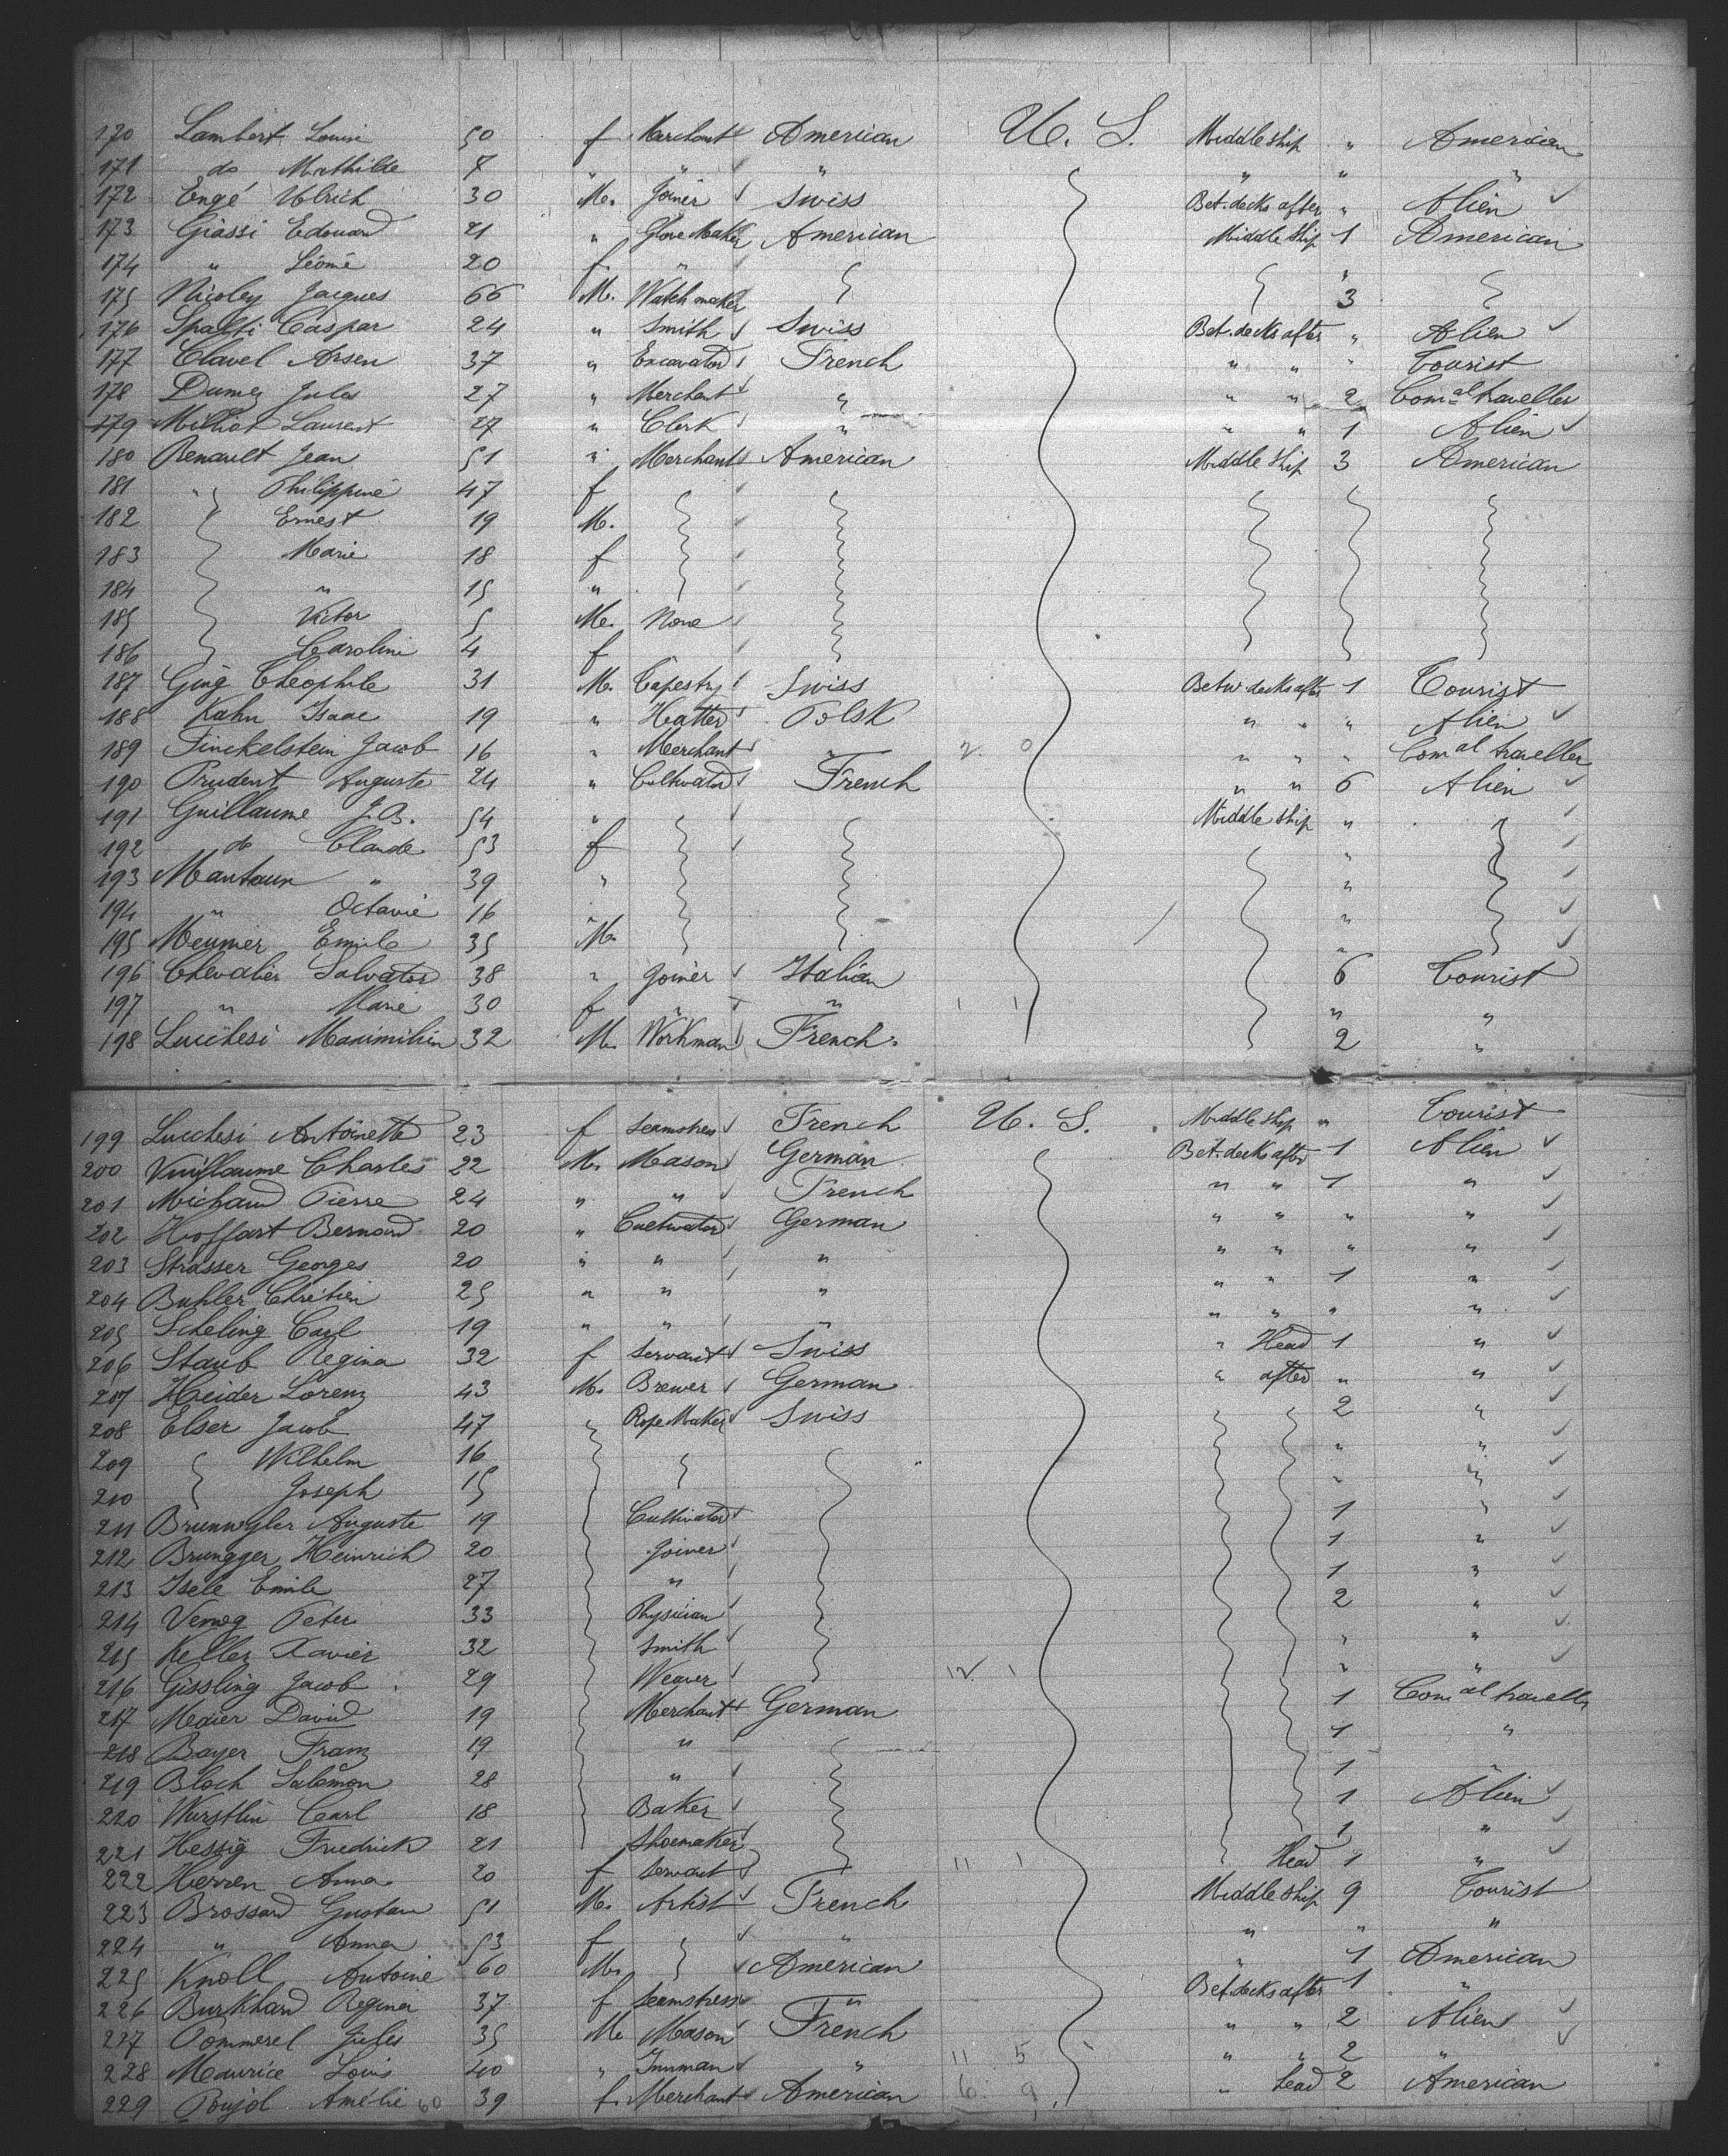 170 Lambert Louise 50 f Merchant American U. S. Middle ship " American
171 do Mathilde 7 " " " " " "
172 Engé Ulrich 30 M. Joiner Swiss Bet. decks after " Alien
173 Giassi Edouard 21 " Glove Maker American Middle Ship 1 American
174 " Léonie 20 f " "
175 Nicoley Jacques 66 M. Watch maker 3
176 Spalti Caspar 24 " Smith Swiss Bet. decks after " Alien
177 Clavel Arsen 37 " Excavator French " " " Tourist
178 Dumez Jules 27 " Merchant " " " 2 Comal traveller
179 Milliot Laurent 27 " Clerk " " " 1 Alien
180 Renault Jean 51 " Merchant American Middle Ship 3 American
181 " Philippine 47 f
182 Ernest 19 M.
183 Marie 18 f
184 " 15 "
185 Victor 5 M. None
186 Caroline 4 f
187 Ging Théophile 31 M. Tapestry Swiss Betw. decks after 1 Tourist
188 Kahn Isaac 19 " Hatter Polsk " " " Alien
189 Finckelstein Jacob 16 " Merchant " 2. 0 " " " Comal traveller
190 Prudent Auguste 24 " Cultivator French " " 6 Alien
191 Guillaume J. B. 54 " Middle ship "
192 do Claude 53 f "
193 Mantaun " 39 " "
194 " Octavie 16 " "
195 Meunier Emile 35 M. "
196 Chevalier Salvator 38 " Joiner Italian 6 Tourist
197 " Marie 30 f " " 1 1 " "
198 Lucchesi Maximilien 32 M. Workman French. 2 "
199 Lucchesi Antoinette 23 f Seamstress French U. S. Middle ship " Tourist
200 Vuillaume Charles 22 M. Mason German Bet. decks after 1 Alien
201 Michaud Pierre 24 " " French " " 1 "
202 Hoffart Bernard 20 " Cultivator German " " " "
203 Strasser Georges 20 " " " " " " "
204 Buhler Chrétien 25 " " " " " 1 "
205 Scheling Carl 19 " " " " " " "
206 Staub Regina 32 f Servant Swiss " Head 1 "
207 Heider Lorenz 43 M. Brewer German " after " "
208 Elser Jacob 47 " Rope Maker Swiss 2 "
209 Wilhelm 16 " "
210 Joseph 15 " "
211 Brunnwyler Auguste 19 Cultivator 1 "
212 Brungger Heinrich 20 Joiner 1 "
213 Isele Emile 27 " 1 "
214 Verwog Peter 33 Physician 2 "
215 Keller Xavier 32 Smith " "
216 Gissling Jacob 29 Weaver 12 1 " "
217 Meaier David 19 Merchant German 1 Comal traveller
218 Bayer Franz 19 " 1 "
219 Bloch Salomon 28 " 1 "
220 Wurstlin Carl 18 Baker 1 Alien
221 Hessig Friedrich 21 Shoemaker 1 "
222 Herren Anna 20 f Servant 11 1 Head 1 "
223 Brossard Gustave 51 M. Artist French Middle ship 9 Tourist
224 " Anna 53 f " " " "
225 Knoll Antoine 60 M. American " 1 American
226 Burkhard Regina 37 f Seamstress " Bet. decks after 1 "
227 Pommerel Jules 35 M. Mason French " " 2 Alien
228 Maurice Louis 40 " Innman " 11 5 " " 2 "
229 Poujol Amélie 60 39 f. Merchant American 6. 9 " head 2 American